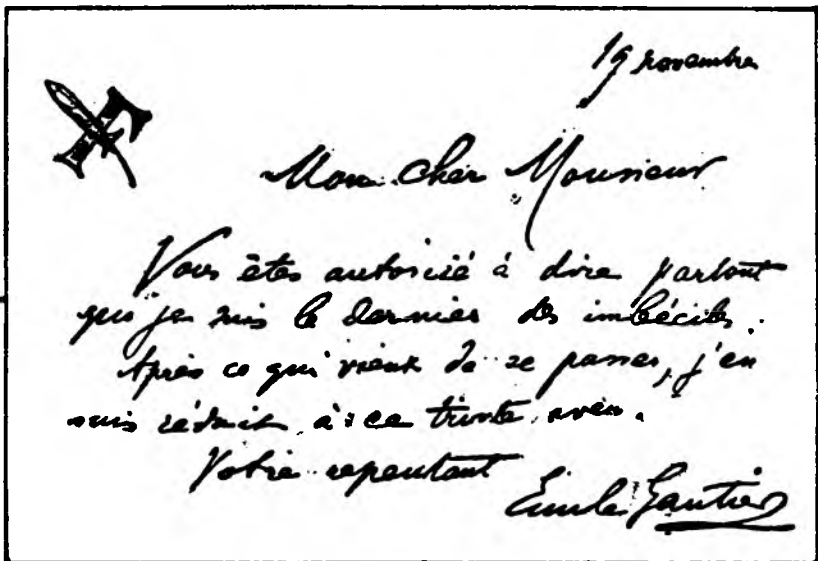 19 novembre
Mon cher Monsieur
Vous êtes autorisé à dire partout
que je suis le dernier des imbéciles.
Après ce qui vient de se passer, j'en
suis réduit à ce triste aveu.
Votre repentant
Emile Gautier